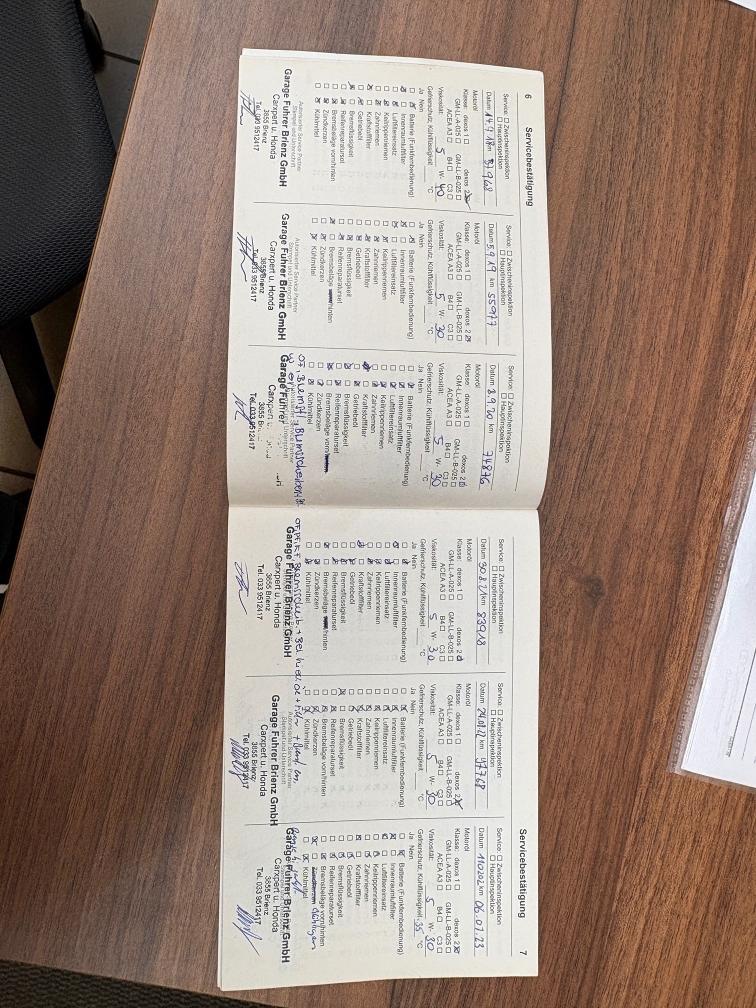 6 Servicebestätigung
Service: ☐ Zwischeninspektion
☐ Hauptinspektion
Datum 14.9.18 km 37968
Motoröl
Klasse: dexos 1 ☐ dexos 2 ☒
GM-LL-A-025 ☐ GM-LL-B-025 ☐
ACEA A3 ☐ B4 ☐ C3 ☐
Viskosität: 5 W- 40
Gefrierschutz, Kühlflüssigkeit °C
Ja Nein
Batterie (Funkfernbedienung)
Innenraumluftfilter
Luftfiltereinsatz
Keilrippenriemen
Zahnriemen
Kraftstofffilter
Getriebeöl
Bremsflüssigkeit
Reifenreparaturset
Bremsbeläge vorn/hinten
Zündkerzen
Kühlmittel
Autorisierter Service Partner
Stempel und Unterschrift
Garage Fuhrer Brienz GmbH
Carxpert u. Honda
3855 Brienz
Tel. 033 9512417
Service: ☐ Zwischeninspektion
☐ Hauptinspektion
Datum 5.9.19 km 55977
Motoröl
Klasse: dexos 1 ☐ dexos 2 ☒
GM-LL-A-025 ☐ GM-LL-B-025 ☐
ACEA A3 ☐ B4 ☐ C3 ☐
Viskosität: 5 W- 30
Gefrierschutz, Kühlflüssigkeit °C
Ja Nein
Batterie (Funkfernbedienung)
Innenraumluftfilter
Luftfiltereinsatz
Keilrippenriemen
Zahnriemen
Kraftstofffilter
Getriebeöl
Bremsflüssigkeit
Reifenreparaturset
Bremsbeläge hinten
Zündkerzen
Kühlmittel
Autorisierter Service Partner
Stempel und Unterschrift
Garage Fuhrer Brienz GmbH
Carxpert u. Honda
3855 Brienz
Tel. 033 9512417
Service: ☐ Zwischeninspektion
☐ Hauptinspektion
Datum 8.9.20 km 74876
Motoröl
Klasse: dexos 1 ☐ dexos 2 ☒
GM-LL-A-025 ☐ GM-LL-B-025 ☐
ACEA A3 ☐ B4 ☐ C3 ☐
Viskosität: 5 W- 30
Gefrierschutz, Kühlflüssigkeit °C
Ja Nein
Batterie (Funkfernbedienung)
Innenraumluftfilter
Luftfiltereinsatz
Keilrippenriemen
Zahnriemen
Kraftstofffilter
Getriebeöl
Bremsflüssigkeit
Reifenreparaturset
Bremsbeläge vorn
Zündkerzen
Kühlmittel
Garage Fuhrer
Carxpert
3855
Tel. 033 9512417
Servicebestätigung 7
Service: ☐ Zwischeninspektion
☐ Hauptinspektion
Datum 30.8.21 km 83918
Motoröl
Klasse: dexos 1 ☐ dexos 2 ☒
GM-LL-A-025 ☐ GM-LL-B-025 ☐
ACEA A3 ☐ B4 ☐ C3 ☐
Viskosität: 5 W- 30
Gefrierschutz, Kühlflüssigkeit °C
Ja Nein
Batterie (Funkfernbedienung)
Innenraumluftfilter
Luftfiltereinsatz
Keilrippenriemen
Zahnriemen
Kraftstofffilter
Getriebeöl
Bremsflüssigkeit
Reifenreparaturset
Bremsbeläge hinten
Zündkerzen
Kühlmittel
Garage Fuhrer Brienz GmbH
Carxpert u. Honda
3855 Brienz
Tel. 033 9512417
Service: ☐ Zwischeninspektion
☐ Hauptinspektion
Datum km 97768
Motoröl
Klasse: dexos 1 ☐ dexos 2 ☒
GM-LL-A-025 ☐ GM-LL-B-025 ☐
ACEA A3 ☐ B4 ☐ C3 ☐
Viskosität: 5 W- 30
Gefrierschutz, Kühlflüssigkeit °C
Ja Nein
Batterie (Funkfernbedienung)
Innenraumluftfilter
Luftfiltereinsatz
Keilrippenriemen
Zahnriemen
Kraftstofffilter
Getriebeöl
Bremsflüssigkeit
Reifenreparaturset
Bremsbeläge vorn/hinten
Zündkerzen
Kühlmittel
Autorisierter Service Partner
Stempel und Unterschrift
Garage Fuhrer Brienz GmbH
Carxpert u. Honda
3855 Brienz
Tel. 033 9512417
Service: ☐ Zwischeninspektion
☐ Hauptinspektion
Datum 110202 km 06.07.23
Motoröl
Klasse: dexos 1 ☐ dexos 2 ☒
GM-LL-A-025 ☐ GM-LL-B-025 ☐
ACEA A3 ☐ B4 ☐ C3 ☐
Viskosität: 5 W- 30
Gefrierschutz, Kühlflüssigkeit -35 °C
Ja Nein
Batterie (Funkfernbedienung)
Innenraumluftfilter
Luftfiltereinsatz
Keilrippenriemen
Zahnriemen
Kraftstofffilter
Getriebeöl
Bremsflüssigkeit
Reifenreparaturset
Bremsbeläge vorn/hinten
Kühlmittel
Garage Fuhrer Brienz GmbH
Carxpert u. Honda
3855 Brienz
Tel. 033 9512417